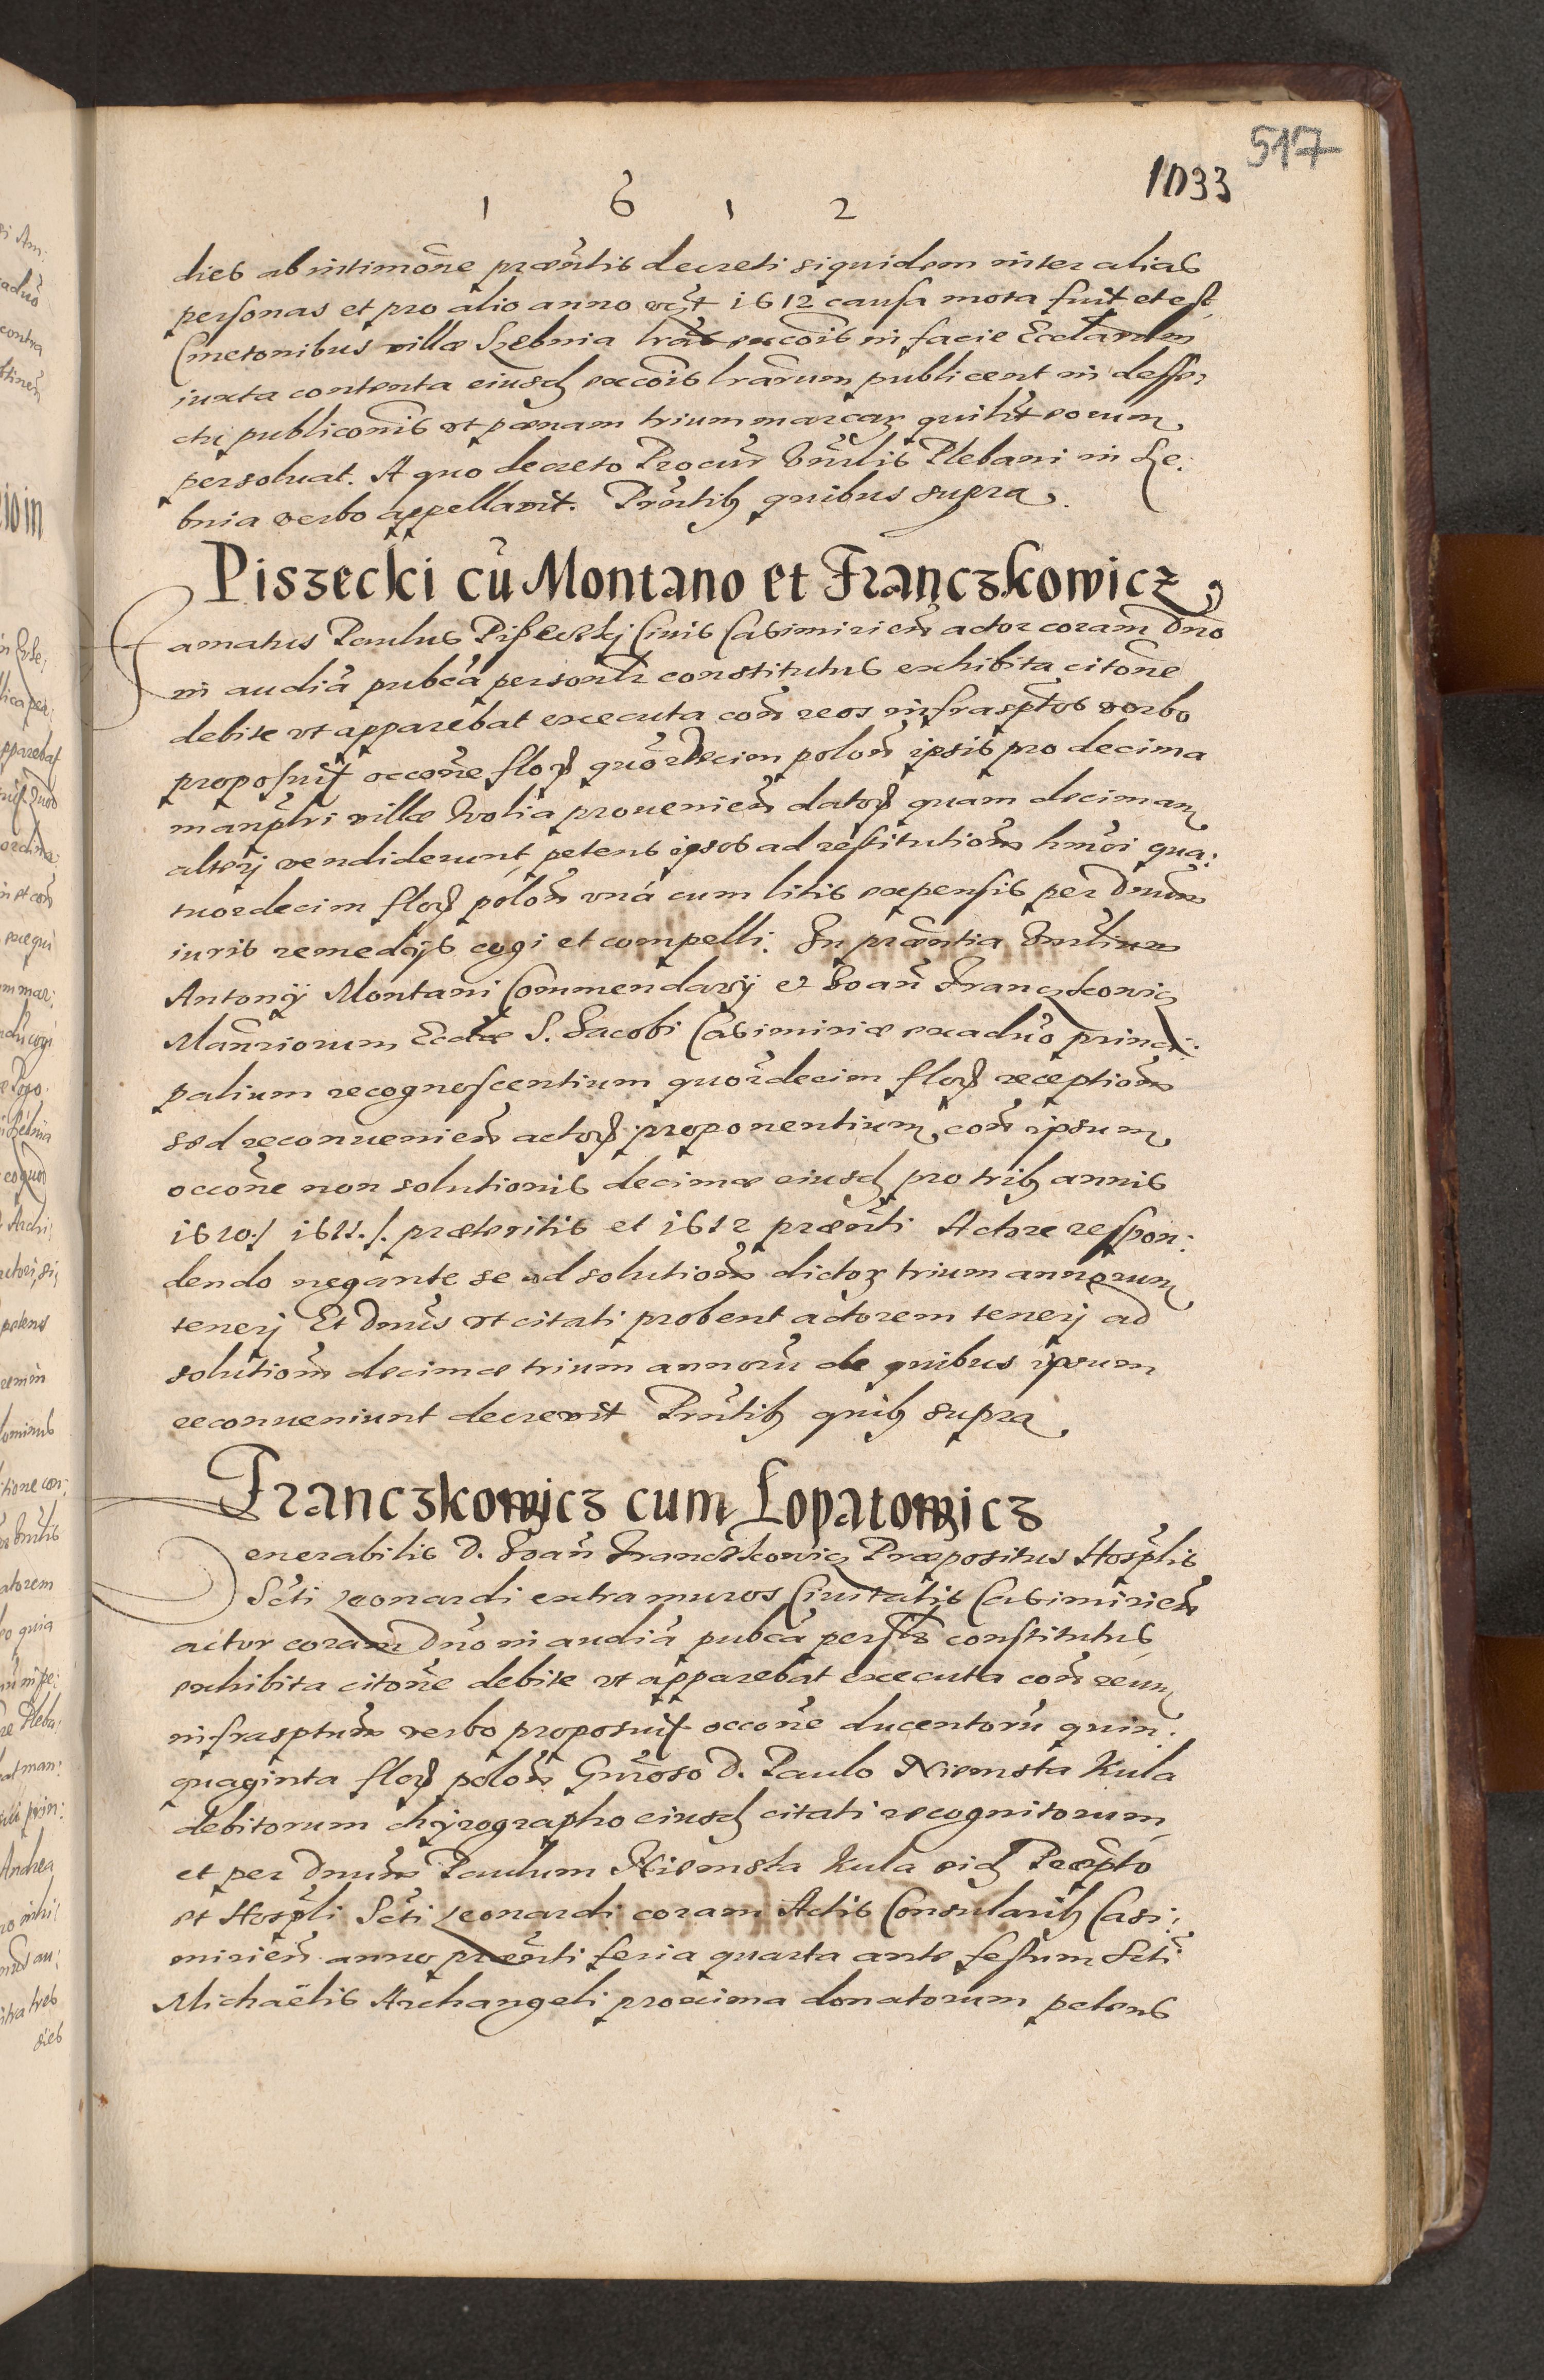 517
1033
1 6 1 2
dies ab intimõne præntis decreti siquidem inter alias
personas et pro alio anno vczt 1612 causa mota fuit et est
Cmetonibus villæ Szebnia lrãs excõis in facie Ecclarum
iuxta contenta eiusd excõis lrarum publicent in deffe,
ctu publicõnis vt pœnam trium marcar quilibt eorum
persoluat. A quo decreto Procur Vnrlis Plebani in Sze:
bnia verbo appellavit. Prntib quibus supra.
Piszecki cũ Montano et Franczkowicz
Famatus Paulus Piszeczkj Ciuis Casimirien actor coram Dno
in audiã pubca personlr constitutus exhibita citõne
debite vt apparebat executa con reos infrasptos verbo
proposuit occõne flor quordecim polon ipsis pro decima
manplri villæ Wolia prouenien dator quam decimam
alterj vendiderunt, petens ipsos ad restitutiom hmõi qua:
tuordecim flor polon vná cum litis expensis per Dnum
iuris remedijs cogi et compelli. In præntia
Antonij Montani Commendarij et Joan Franczkowicz
Manriorum Eccliæ S. Jacobi Casimiriæ ex aduo princi:
palium recognoscentium quordecim flor receptiom
sed reconuenien actor proponentium con ipsum
occõne non solutionis decimæ eiusd pro trib annis
1610./ 1611./. præteritis et 1612 prænti Actore respon:
dendo negante se ad solutiom dictor trium annorum
tenerj Et Dnus vt citati probent actorem tenerj ad
solutiom decimæ trium annorũ de quibus ipsum
reconueniunt decrevit Prntib quib supra
Franczkowicz cum Lopatowicz
Venerabilis D. Joan Franczkowicz Præpositus Hosplis
Scti Leonardi extra muros Ciuitatis Casimirien
actor coram Dno in audiã pubca perslr constitutus
exhibita citõne debite vt apparebat executa con reum
infrasptum verbo proposuit occõne ducentorũ quin:
quaginta flor polon Gnroso D. Paulo Niemsta Kula
debitorum chyrographo eiusd citati recognitorum
et per Dnum Paulum Niemsta Kula eid Præpto
et Hospli Scti Leonardi coram Actis Consularib Casi:
mirien anno prænti feria quarta ante festum Scti
Michaëlis Archangeli proxima donatorum petens